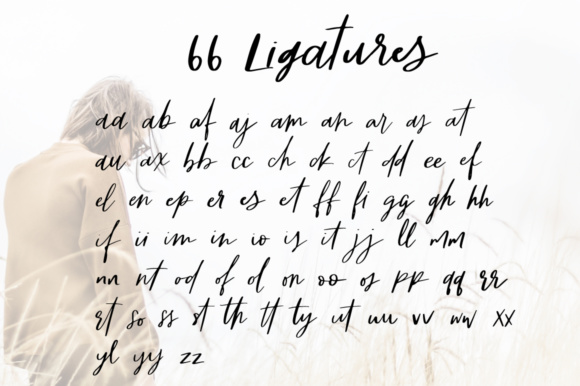 66 Ligatures
ad ab af aj am an ar as at
au ax bb cc ch ck ct dd ee ef
el en ep er es et ff fi gg gh hh
if ii im in io is it jj ll mm
nn nt od of ol on oo os pp qq rr
rt so ss st th tt ty ut uu vv ww xx
yl yy zz